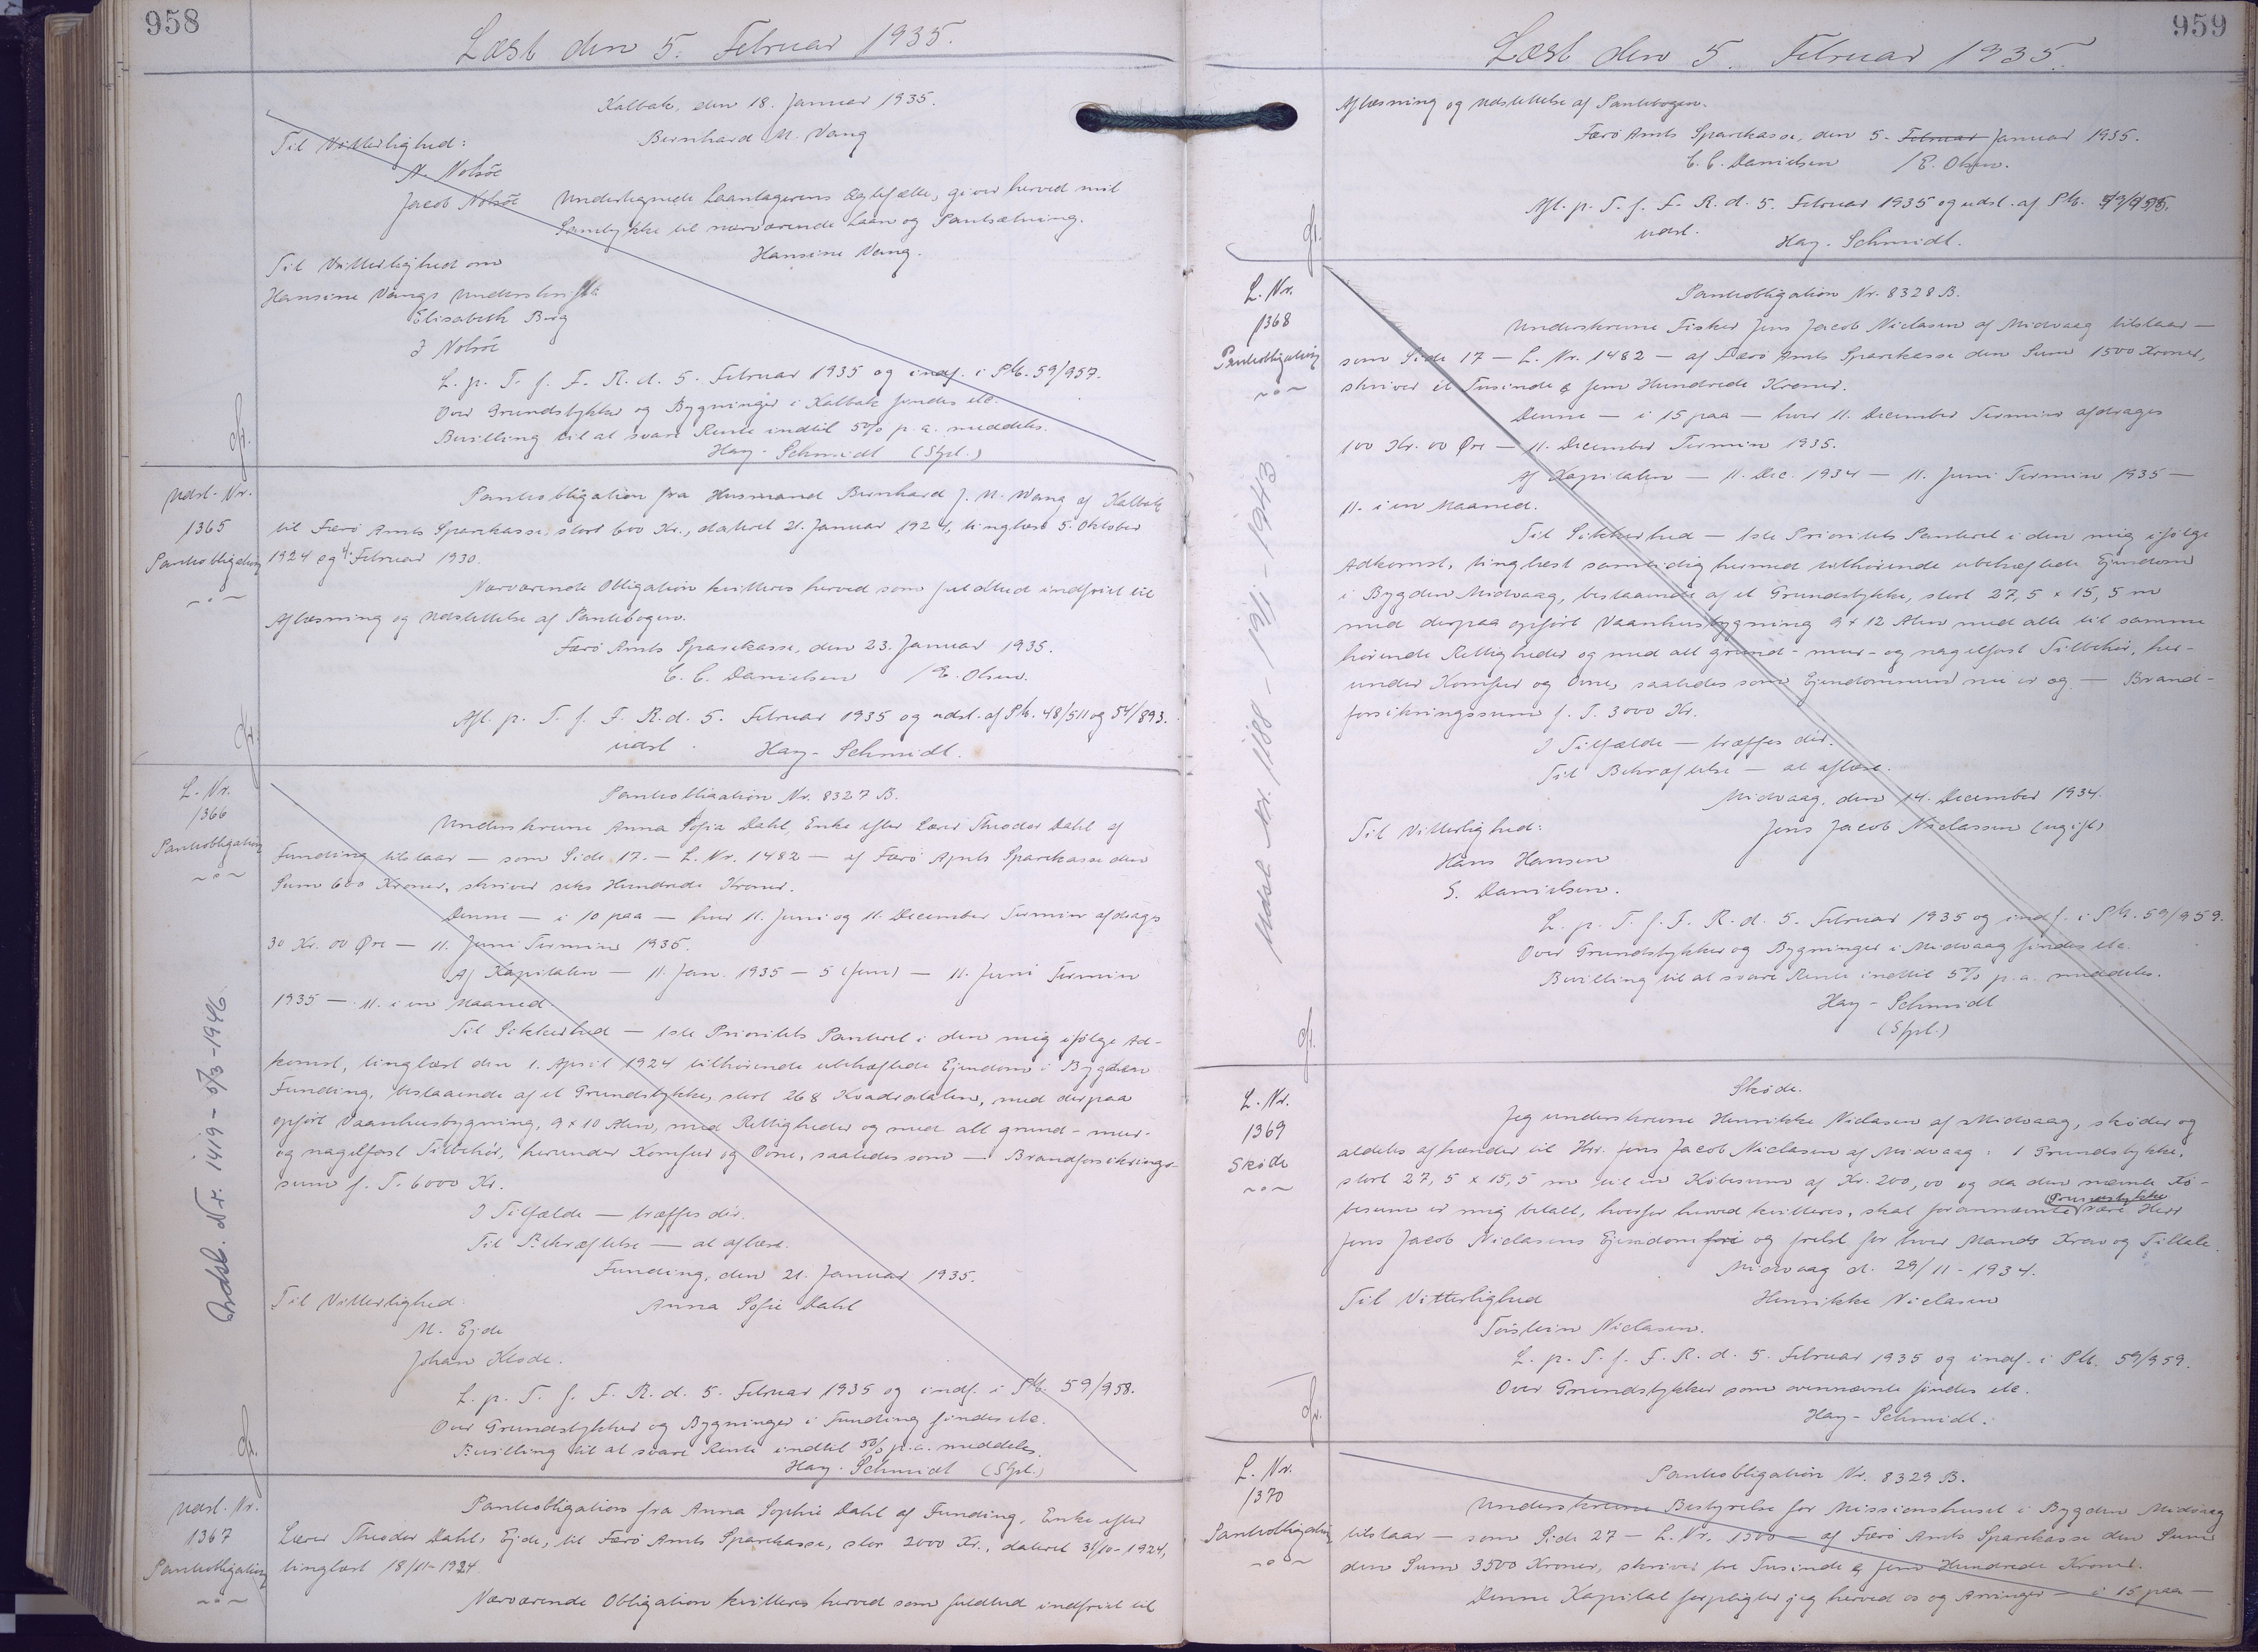 958
Læst den 5. Februar 1935.
Kalbak, den 18. Januar 1935.
Til Vitterlighed:
Bernhard M. Vang
N. Nolsöe
Jacob Nolsöe
Undertegnede Laantagerens Ægtefælle, giver herved mit
Samtykke til nærværende Laan og Pantsætning.
Hansine Vang.
Til Vitterlighed om
Hansine Vangs Underskrift
Elisabeth Berg
J Nolsöe
L. p. T. f. F. R. d. 5. Februar 1935 og indf. i Pb. 59/957.
Over Grundstykker og Bygninger i Kalbak findes etc.
Bevilling til at svare Rente indtil 5% p. a. meddeles.
Hay-Schmidt (Stpl.)
Udsl. Nr.
1365
Panteobligation
Panteobligation fra Husmand Bernhard J. M. Wang af Kalbak
til Færø Amts Sparekasse, stort 600 Kr., dateret 21. Januar 1924, tinglæst 5. Oktober
1924 og 4. Februar 1930.
Nærværende Obligation kvitteres herved som fuldtud indfriet til
Aflæsning og Udslettelse af Pantebogen.
Færø Amts Sparekasse, den 23. Januar 1935.
C. C. Danielsen /E. Olsen.
Afl. p. T. f. F. R. d. 5. Februar 1935 og udsl. af Pb. 48/511 og 54/893.
udsl. Hay-Schmidt.
L. Nr.
1366
Panteobligation
Udsl. Nr. 1419 - 5/3 - 1946.
Panteobligation Nr. 8327 B.
Underskrevne Anna Sofia Dahl, Enke efter Lærer Theodor Dahl af
Funding tilstaar — som Side 17. — L. Nr. 1482 — af Færø Amts Sparekasse den
Sum 600 Kroner, skriver seks Hundrede Kroner.
Denne — i 10 paa — hver 11. Juni og 11. December Termin afdrages
30 Kr. 00 Øre — 11. Juni Termin 1935.
Af Kapitalen — 11. Jan. 1935 — 5 (fem) — 11. Juni Termin
1935 — 11. i en Maaned
Til Sikkerhed — 1ste Prioritets Panteret i den mig ifølge Ad-
komst, tinglæst den 1. April 1924 tilhørende ubehæftede Ejendom i Bygden
Funding, bestaaende af et Grundstykke, stort 268 Kvadratalen, med derpaa
opført Vaanhusbygning, 9 x 10 Alen, med Rettigheder og med alt grund- mur-
og nagelfast Tilbehör, herunder Komfur og Ovne, saaledes som — Brandforsikrings-
sum f. T. 6000 Kr.
I Tilfælde — træffes der.
Til Bekræftelse — at aflæse.
Funding, den 21. Januar 1935.
Til Vitterlighed:
Anna Sofie Dahl
M. Ejde
Johan Klode.
L. p. T. f. F. R. d. 5. Februar 1935 og indf. i Pb. 59/958.
Over Grundstykker og Bygninger i Funding findes etc.
Bevilling til at svare Rente indtil 5% p. a. meddeles.
Hay-Schmidt (Stpl.)
Udsl. Nr.
1367
Panteobligation
Panteobligation fra Anna Sophie Dahl af Funding, Enke efter
Lærer Theodor Dahl, Ejde, til Færø Amts Sparekasse, stor 2000 Kr., dateret 31/10-1924,
tinglæst 18/11-1924.
Nærværende Obligation kvitteres herved som fuldtud indfriet til
959
Læst den 5. Februar 1935.
Aflæsning og Udslettelse af Pantebogen.
Færø Amts Sparekasse, den 5. Februar Januar 1935.
C. C. Danielsen /E. Olsen.
Afl. p. T. f. F. R. d. 5. Februar 1935 og udsl. af Pb.
udsl.
Hay-Schmidt.
L. Nr.
1368
Panteobligation
Udsl. Nr. 1188 - 19/1 - 1943
Panteobligation Nr. 8328 B.
Underskrevne Fisker Jens Jacob Niclasen af Midvaag tilstaar —
som Side 17 — L. Nr. 1482 — af Færö Amts Sparekasse den Sum 1500 Kroner,
skriver et Tusinde & fem Hundrede Kroner.
Denne — i 15 paa — hver 11. December Termin afdrages
100 Kr. 00 Øre — 11. December Termin 1935.
Af Kapitalen — 11. Dec. 1934 — 11. Juni Termin 1935 —
11. i en Maaned.
Til Sikkerhed — 1ste Prioritets Panteret i den mig ifölge
Adkomst, tinglæst samtidig hermed tilhørende ubehæftede Ejendom
i Bygden Midvaag, bestaaende af et Grundstykke, stort 27,5 x 15,5 m
med derpaa opfört Vaanhusbygning 9 x 12 Alen med alle til samme
hörende Rettigheder og med alt grund- mur- og nagelfast Tilbehör, her-
under Komfur og Ovne, saaledes som Ejendommen nu er og — Brand-
forsikringssum f. T. 3000 Kr.
I Tilfælde — træffes der.
Til Bekræftelse — at aflæse.
Midvaag, den 14. December 1934.
Til Vitterlighed:
Jens Jacob Niclassen (ugift)
Hans Hansen
S. Danielsen.
L. p. T. f. F. R. d. 5. Februar 1935 og indf. i Pb. 59/959.
Over Grundstykker og Bygninger i Midvaag findes etc.
Bevilling til at svare Rente indtil 5% p. a. meddeles.
Hay-Schmidt
(Stpl.)
L. Nr.
1369
Skøde
Skøde.
Jeg underskrevne Henrikke Niclasen af Midvaag, skøder og
aldeles afhænder til Hrr. Jens Jacob Niclasen af Midvaag: 1 Grundstykke,
stort 27,5 x 15,5 m til en Købesum af Kr. 200,00 og da den nævnte Kö-
besum er mig betalt, hvorfor herved kvitteres, skal forannævnte Grundstykke være Herr
Jens Jacob Niclasens Ejendom fri og frelst for hver Mands Krav og Tiltale.
Midvaag d. 29/11-1934.
Til Vitterlighed
Henrikke Niclasen
Torstein Niclasen.
L. p. T. f. F. R. d. 5. Februar 1935 og indf. i Pb. 59/959.
Over Grundstykker som ovennævnte findes etc.
Hay-Schmidt.
L. Nr.
1370
Panteobligation
Panteobligation Nr. 8329 B.
Underskrevne Bestyrelse for Missionshuset i Bygden Midvaag
tilstaar — som Side 27 — L. Nr. 1500 — af Færø Amts Sparekasse den Sum
den Sum 3500 Kroner, skriver tre Tusinde & fem Hundrede Kroner.
Denne Kapital forpligter jeg herved os og Arvinger — i 15 paa —